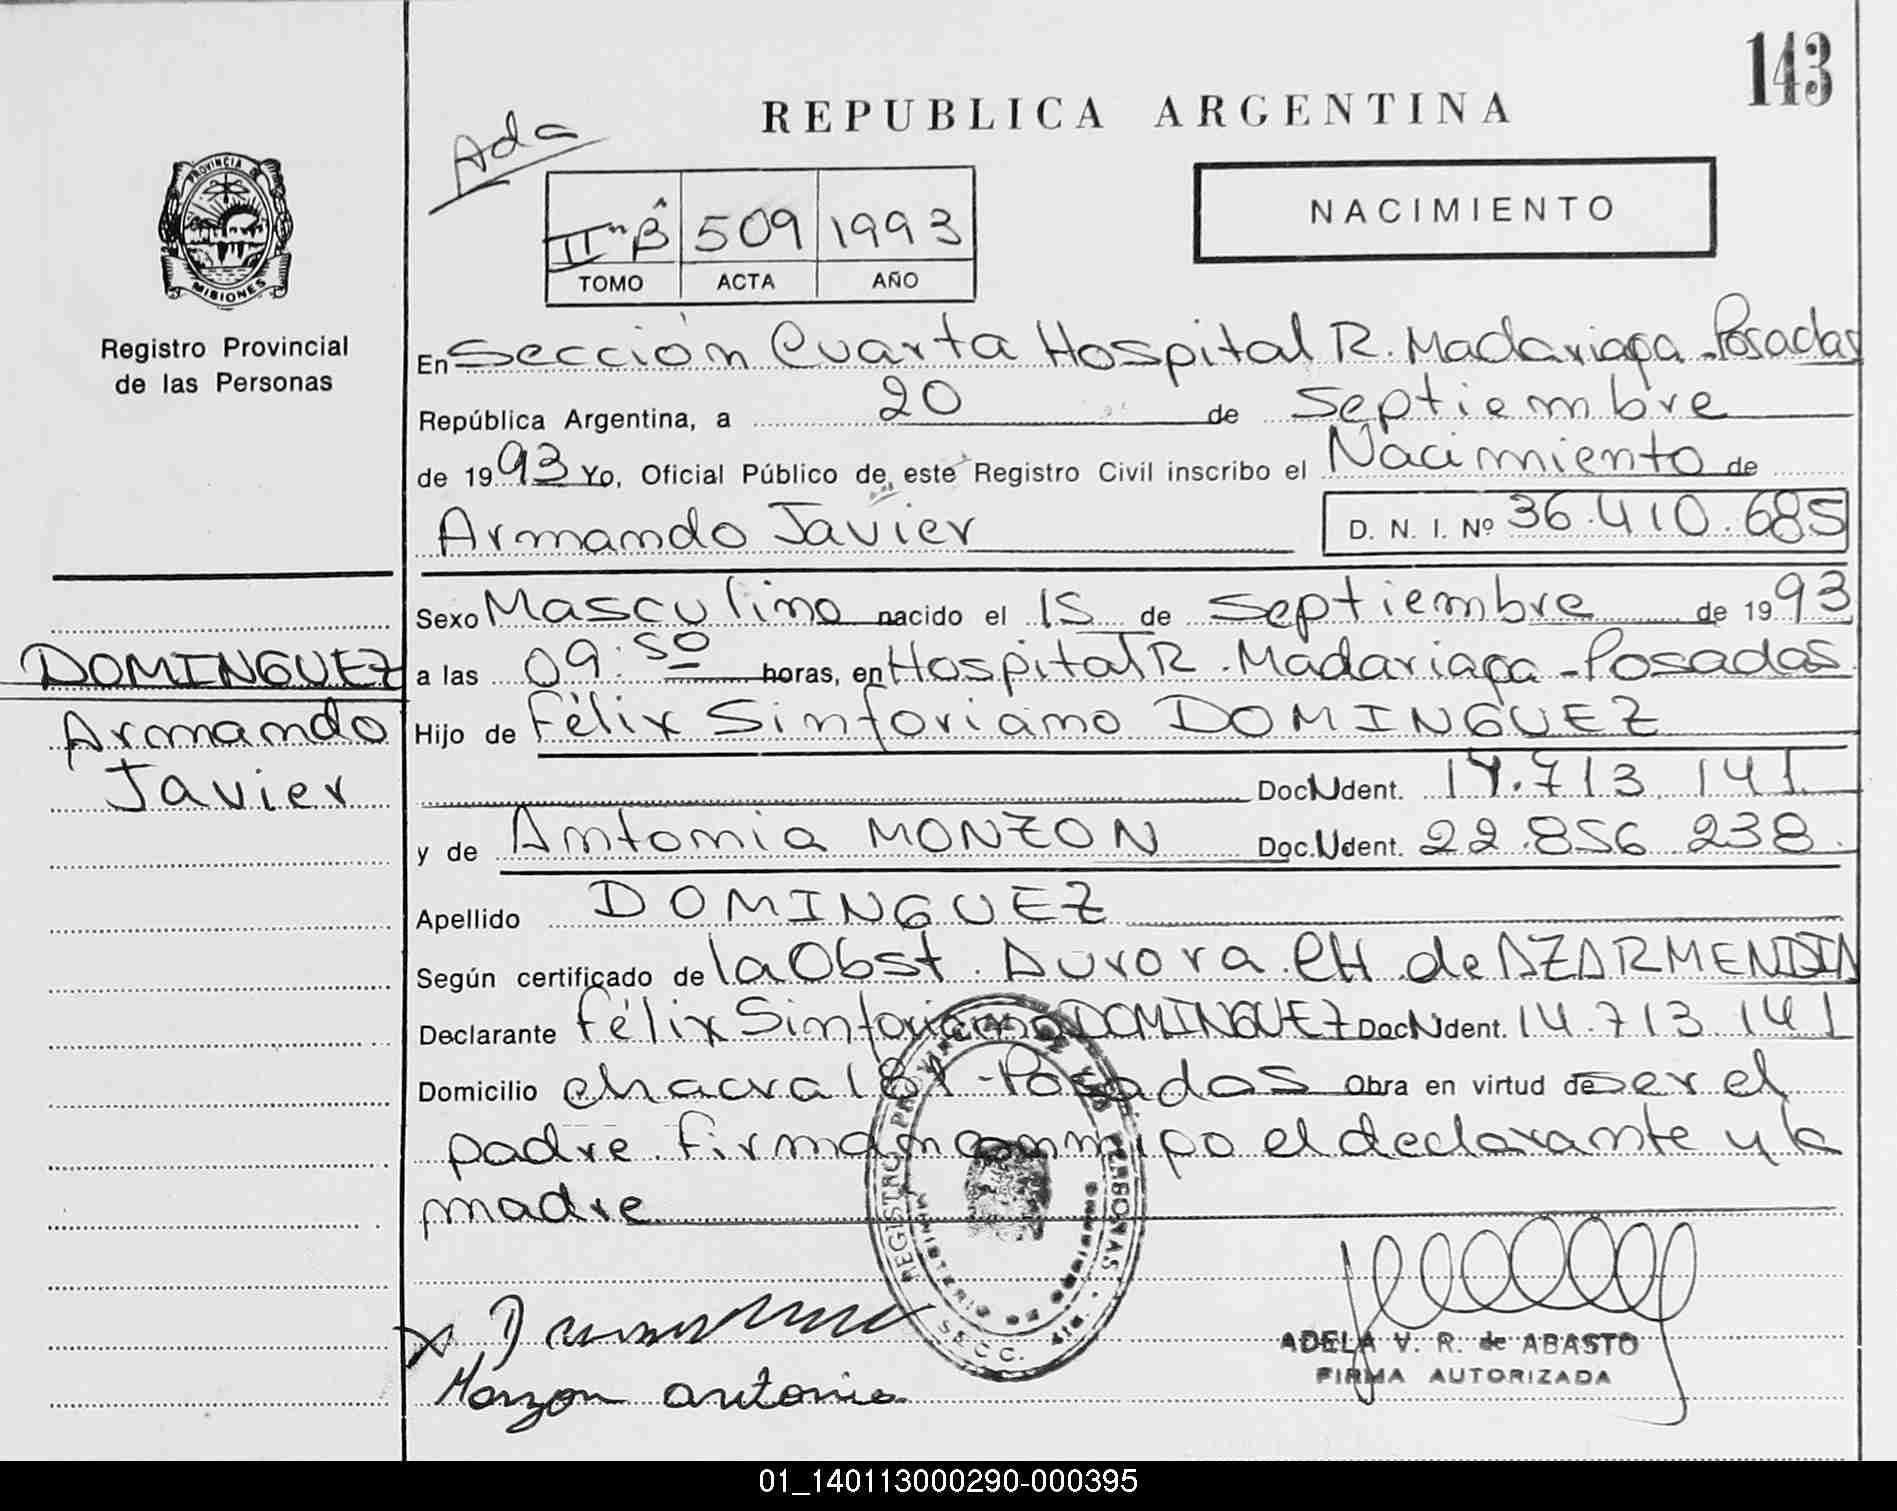 143
REPUBLICA ARGENTINA
Ada
PROVINCIA DE
MISIONES
Registro Provincial
de las Personas
IIº B 509 1993
TOMO ACTA AÑO
NACIMIENTO
En Sección Cuarta Hospital R. Madariaga - Posadas
República Argentina, a 20 de Septiembre
de 1993 Yo, Oficial Público de este Registro Civil inscribo el Nacimiento de
Armando Javier D. N. I. Nº 36.410.685
Sexo Masculino nacido el 15 de Septiembre de 1993
DOMINGUEZ
Armando
Javier
a las 09:50 horas, en Hospital R. Madariaga - Posadas
Hijo de Félix Sinforiano DOMINGUEZ
Doc.N.Ident. 14.713.141
y de Antonia MONZON Doc.N.Ident. 22.856.238
Apellido DOMINGUEZ
Según certificado de la Obst. Aurora CH de AZARMENDIA
Declarante Félix Sinforiano DOMINGUEZ Doc.N.Ident. 14.713.141
Domicilio chacra 181 - Posadas Obra en virtud de ser el
padre. firman conmigo el declarante y la
madre
REGISTRO PROVINCIAL DE LAS PERSONAS
SECC. 4ta.
X
Monzon antonia
ADELA V. R. de ABASTO
FIRMA AUTORIZADA
01_140113000290-000395